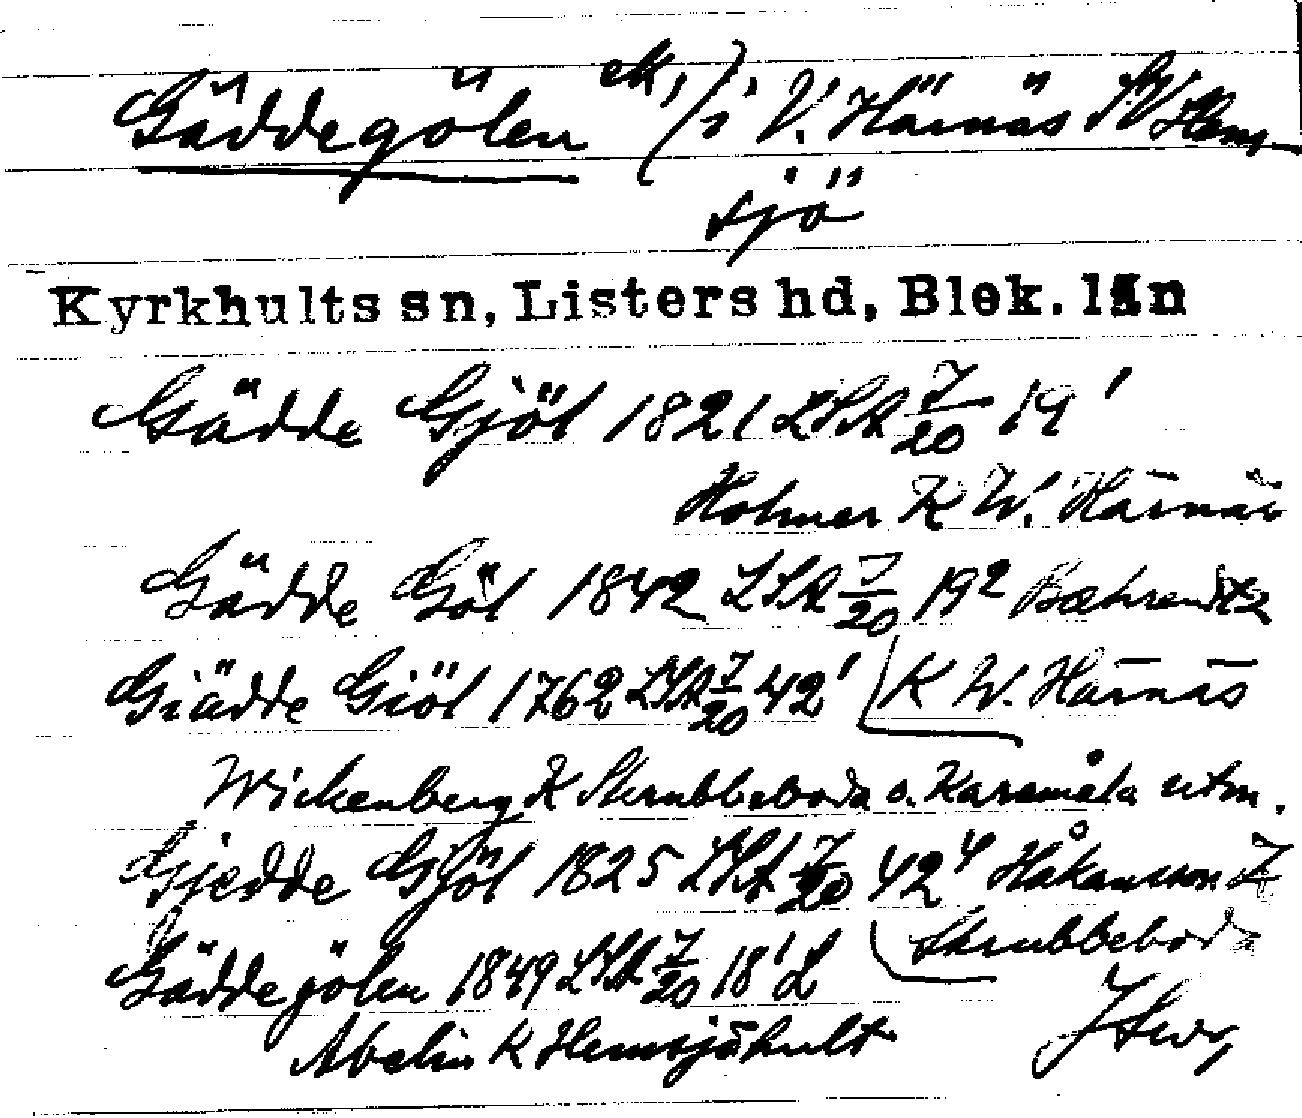 Gäddegölen ek, / i V. Härnäs SV Hem-
sjö
Kyrkhults sn, Listers hd, Blek. län
Gädde Gjöl 1821 LSA 7/20 19¹
Holmer K W. Härnäs
Gädde Göl 1842 LSA 7/20 19² Bæhrendtz
K W. Härnäs
Giädde Giöl 1762 LSA 7/20 42¹
Wickenberg K Skrubbeboda o. Karsmåla utm.
Gjedde Gjöl 1825 LSA 7/20 42⁴ Håkansson
Skrubbeboda
Gäddegölen 1849 LSA 7/20 18¹ L
Abelin K Hemsjöhult